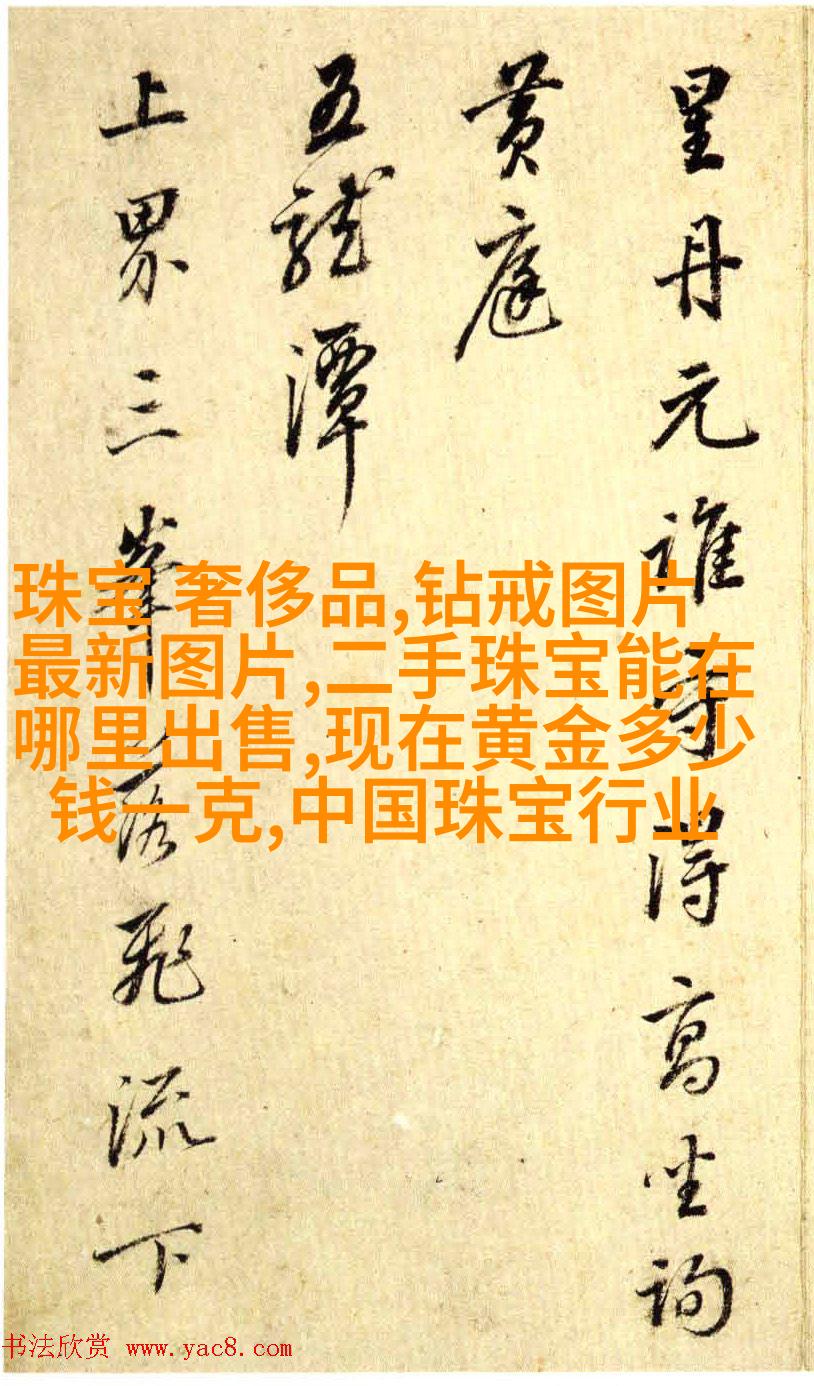 星丹元誰守得高坐詢
黄庭
五龍潭
上界三峯落飛流下
珠宝 奢侈品,钻戒图片
最新图片,二手珠宝能在
哪里出售,现在黄金多少
钱一克,中国珠宝行业
书法欣赏 www.yac8.com